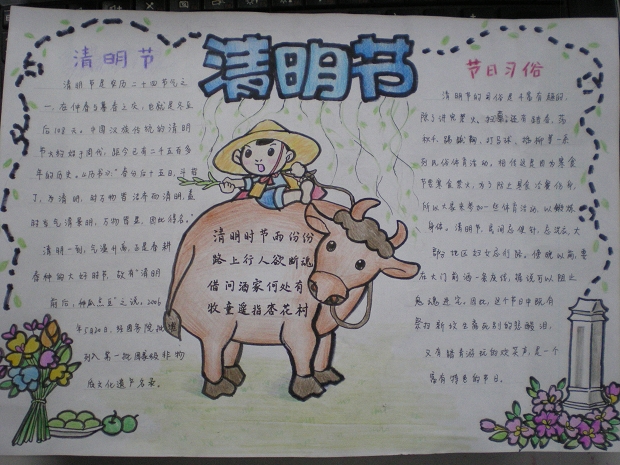 清明节
清明节
清明节是农历二十四节气之
一,在仲春与暮春之交,也就是冬至
后108天。中国汉族传统的清明
节大约始于周代,距今已有二千五百多
年的历史。《历书》:“春分后十五日,斗指
丁,为清明,时万物皆洁齐而清明,盖
时当气清景明,万物皆显,因此得名。”
清明一到,气温升高,正是春耕
春种的大好时节,故有“清明
前后,种瓜点豆”之说。2006
年5月20日,经国务院批准
列入第一批国家级非物
质文化遗产名录。
清明时节雨份份
路上行人欲断魂
借问酒家何处有
牧童遥指杏花村
节日习俗
清明节的习俗是丰富有趣的,
除了讲究禁火、扫墓,还有踏青、荡
秋千、踢蹴鞠、打马球、插柳等一系
列风俗体育活动。相传这是因为寒食
节要寒食禁火,为了防止寒食冷餐伤身,
所以大家来参加一些体育活动,以锻炼
身体。清明节,民间忌使针,忌洗衣,大
部分地区妇女忌行路。傍晚以前,要
在大门前洒一条灰线,据说可以阻止
鬼魂进宅。因此,这个节日中既有
祭扫新坟生离死别的悲酸泪,
又有踏青游玩的欢笑声,是一个
富有特色的节日。